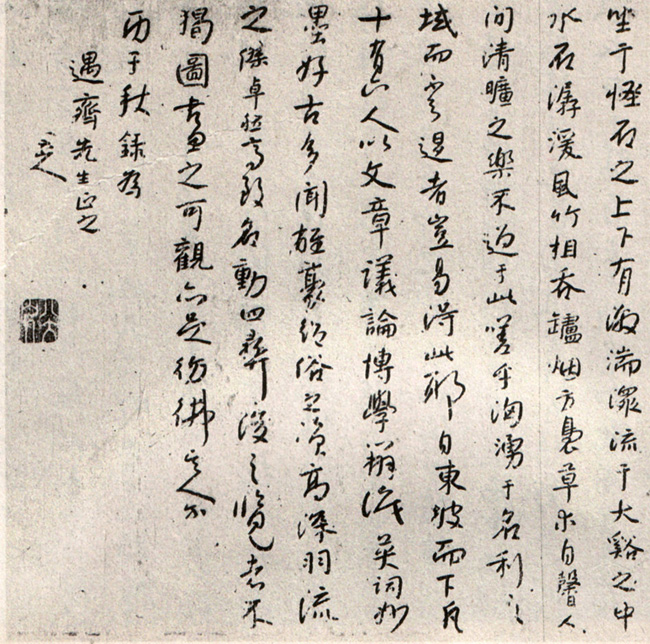 坐于怪石之上下有激湍潨流于大谿之中
水石潺湲風竹相吞罏烟方裊草木自馨人
间清曠之樂不過于此嗟乎洶湧于名利之
域而退者豈易得此耶自東坡而下凡
十有六人以文章議論博學辨識英詞妙
墨好古多闻雄豪絕俗之資高深羽流
之傑卓然高致名動四夷後之覽者不
獨圖畫之可觀亦足彷彿其人尔
丙子秋錄為
遇齊先生正之
八大山人